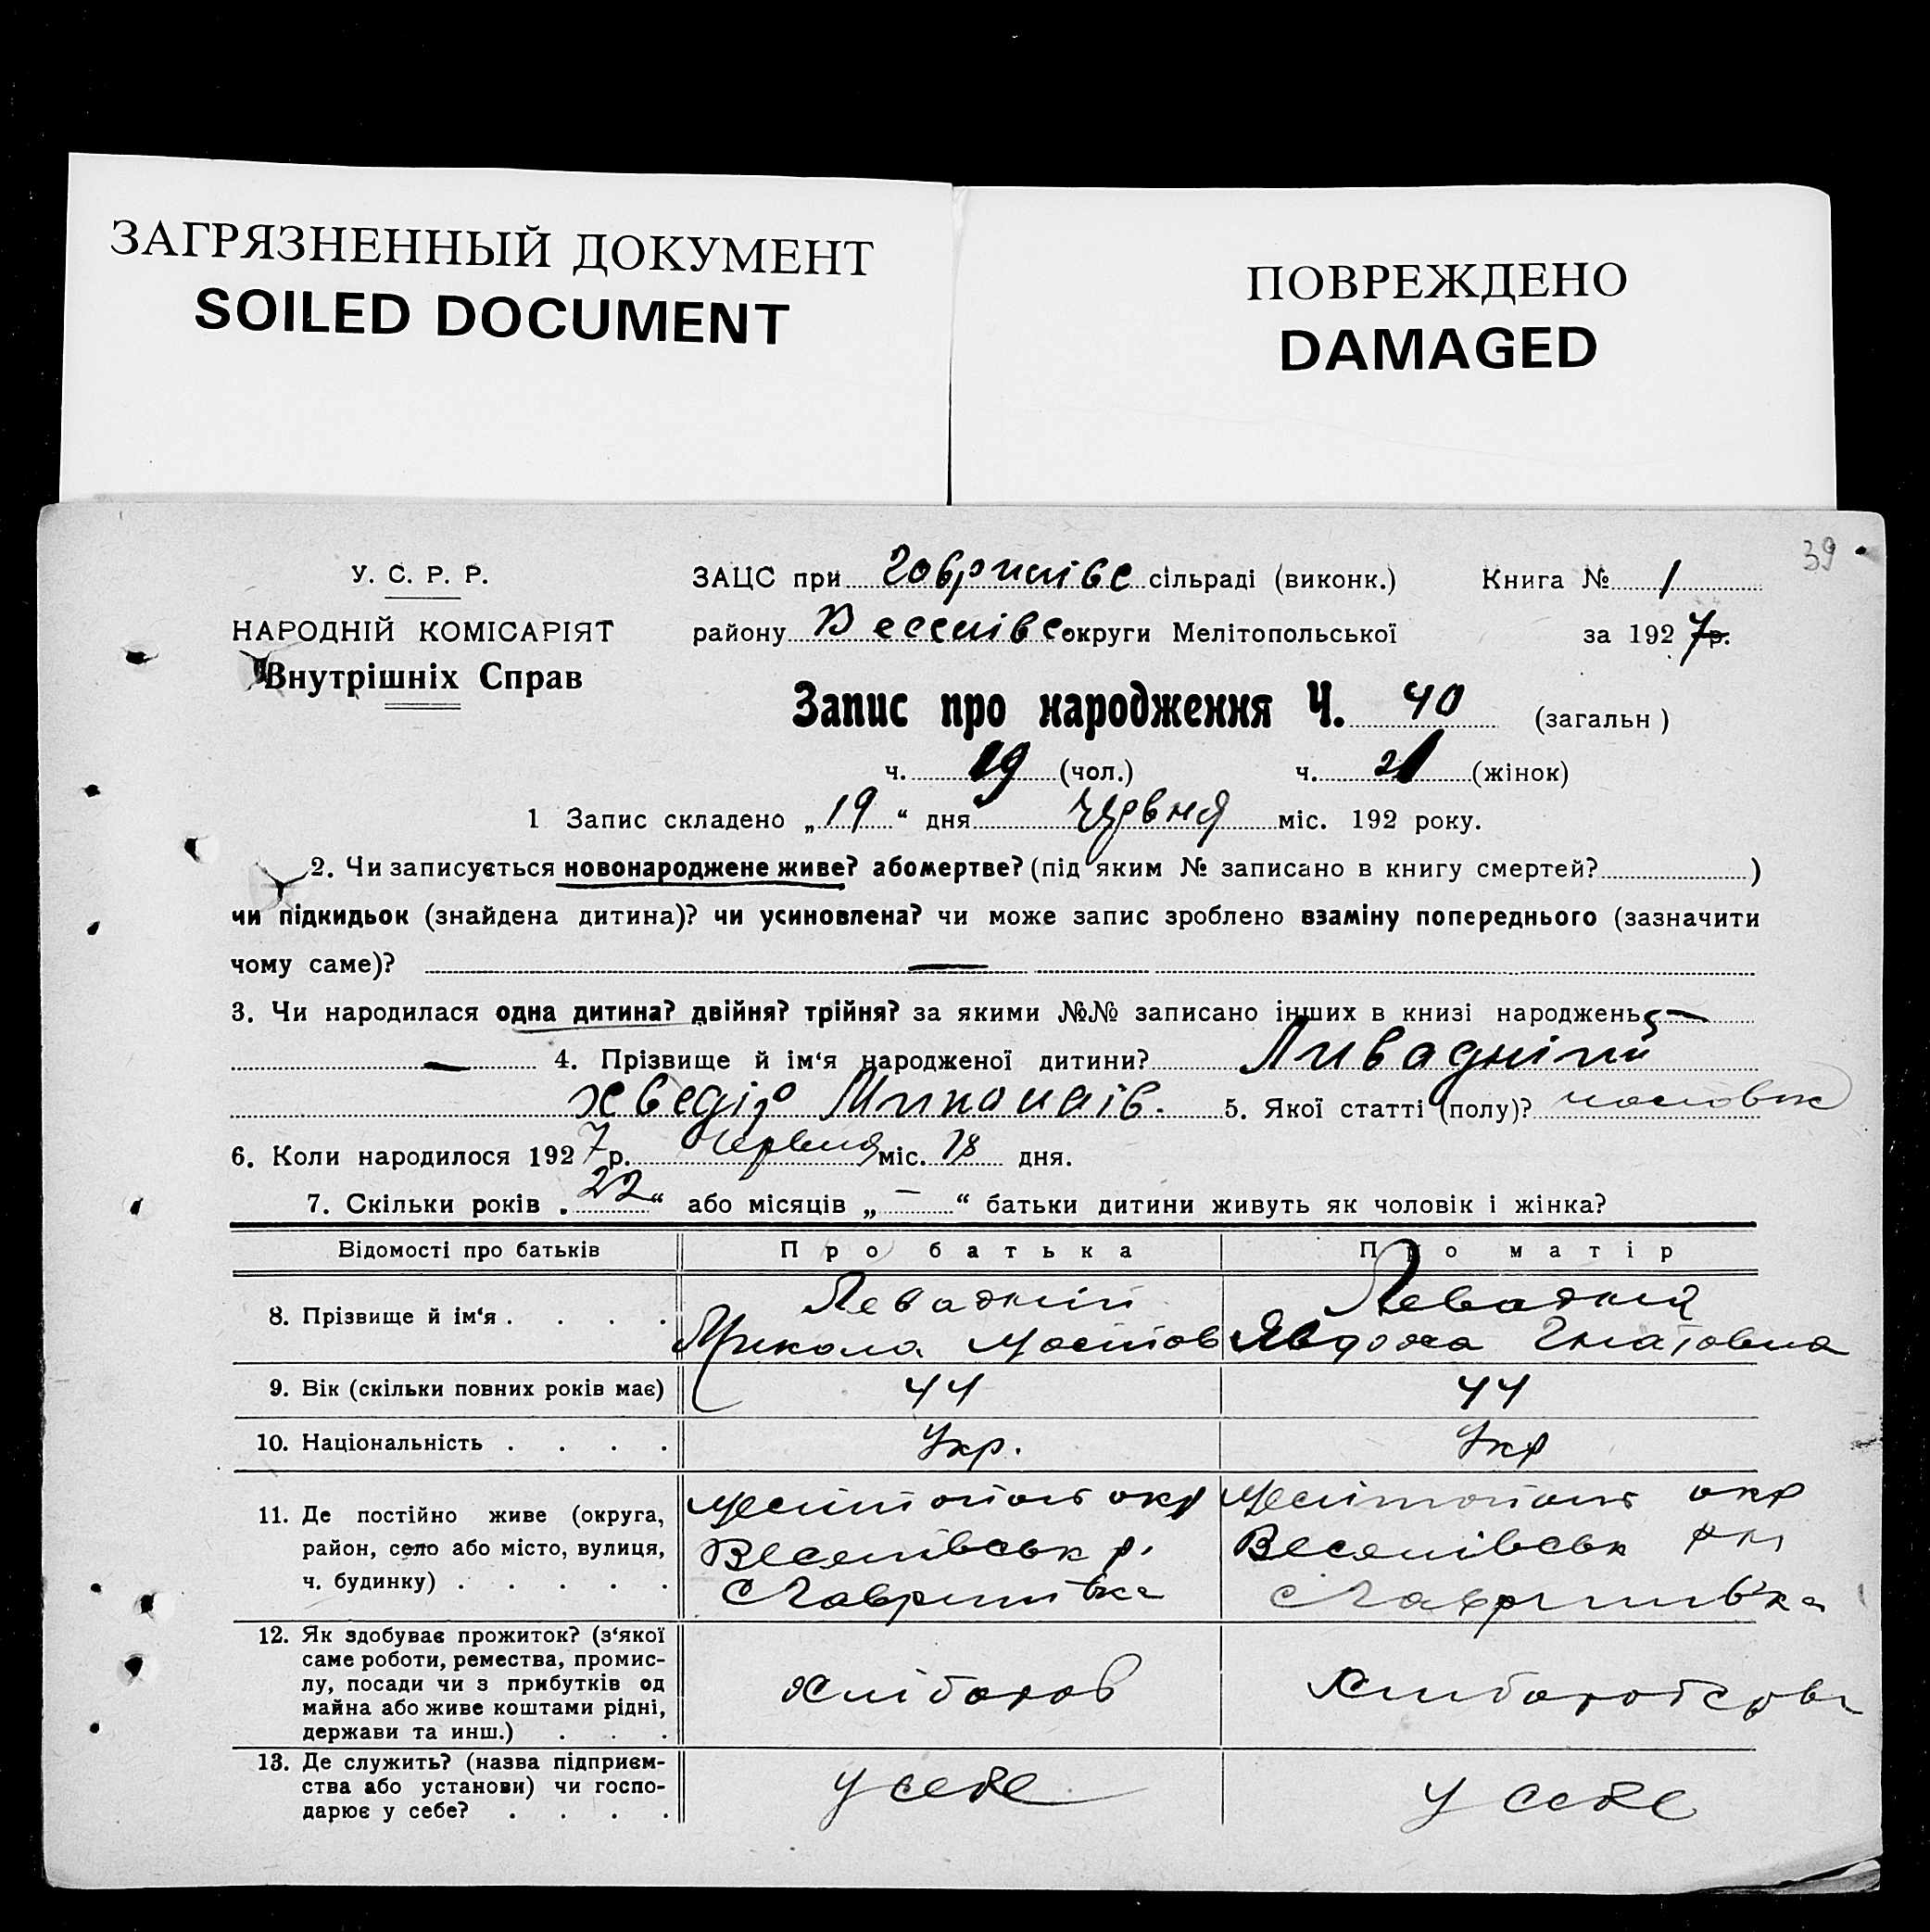 ЗАГРЯЗНЕННЫЙ ДОКУМЕНТ
SOILED DOCUMENT
ПОВРЕЖДЕНО
DAMAGED
39
У. С. Р. Р.
НАРОДНІЙ КОМІСАРІЯТ
Внутрішніх Справ
ЗАЦС при Гаврилівс сільраді (виконк.) Книга № 1
району Веселівс округи Мелітопольської за 1927р.
Запис про народження Ч. 40 (загальн)
ч. 19 (чол.) ч. 21 (жінок)
1 Запис складено „19“ дня червня міс. 192 року.
2. Чи записується новонароджене живе? або мертве? (під яким № записано в книгу смертей? )
чи підкидьок (знайдена дитина)? чи усиновлена? чи може запис зроблено взаміну попереднього (зазначити
чому саме)? —
3. Чи народилася одна дитина? двійня? трійня? за якими №№ записано інших в книзі народжень —
— 4. Прізвище й ім‘я народженої дитини? Ливадній
Хведір Миколаїв. 5. Якої статті (полу)? чоловік
6. Коли народилося 1927 р. червня міс. 18 дня.
7. Скільки років „22“ або місяців „—“ батьки дитини живуть як чоловік і жінка?
Відомості про батьків Про батька Про матір
8. Прізвище й ім‘я . . . . Левадний Левадна
Микола Явдоха Гнатовна
9. Вік (скільки повних років має) 44 44
10. Національність . . . . Укр. Укр
11. Де постійно живе (округа, Мелітопольс окр Мелітопольс окр
район, село або місто, вулиця, Веселівськ р. Веселівськ рну
ч. будинку) . . . . . с Гаврилівка с Гаврилівка
12. Як здобуває прожиток? (з‘якої
саме роботи, ремества, промис-
лу, посади чи з прибутків од хлібороб
майна або живе коштами рідні,
держави та инш.) . . .
13. Де служить? (назва підприєм-
ства або установи) чи госпо- у себе у себе
дарює у себе? . . . .